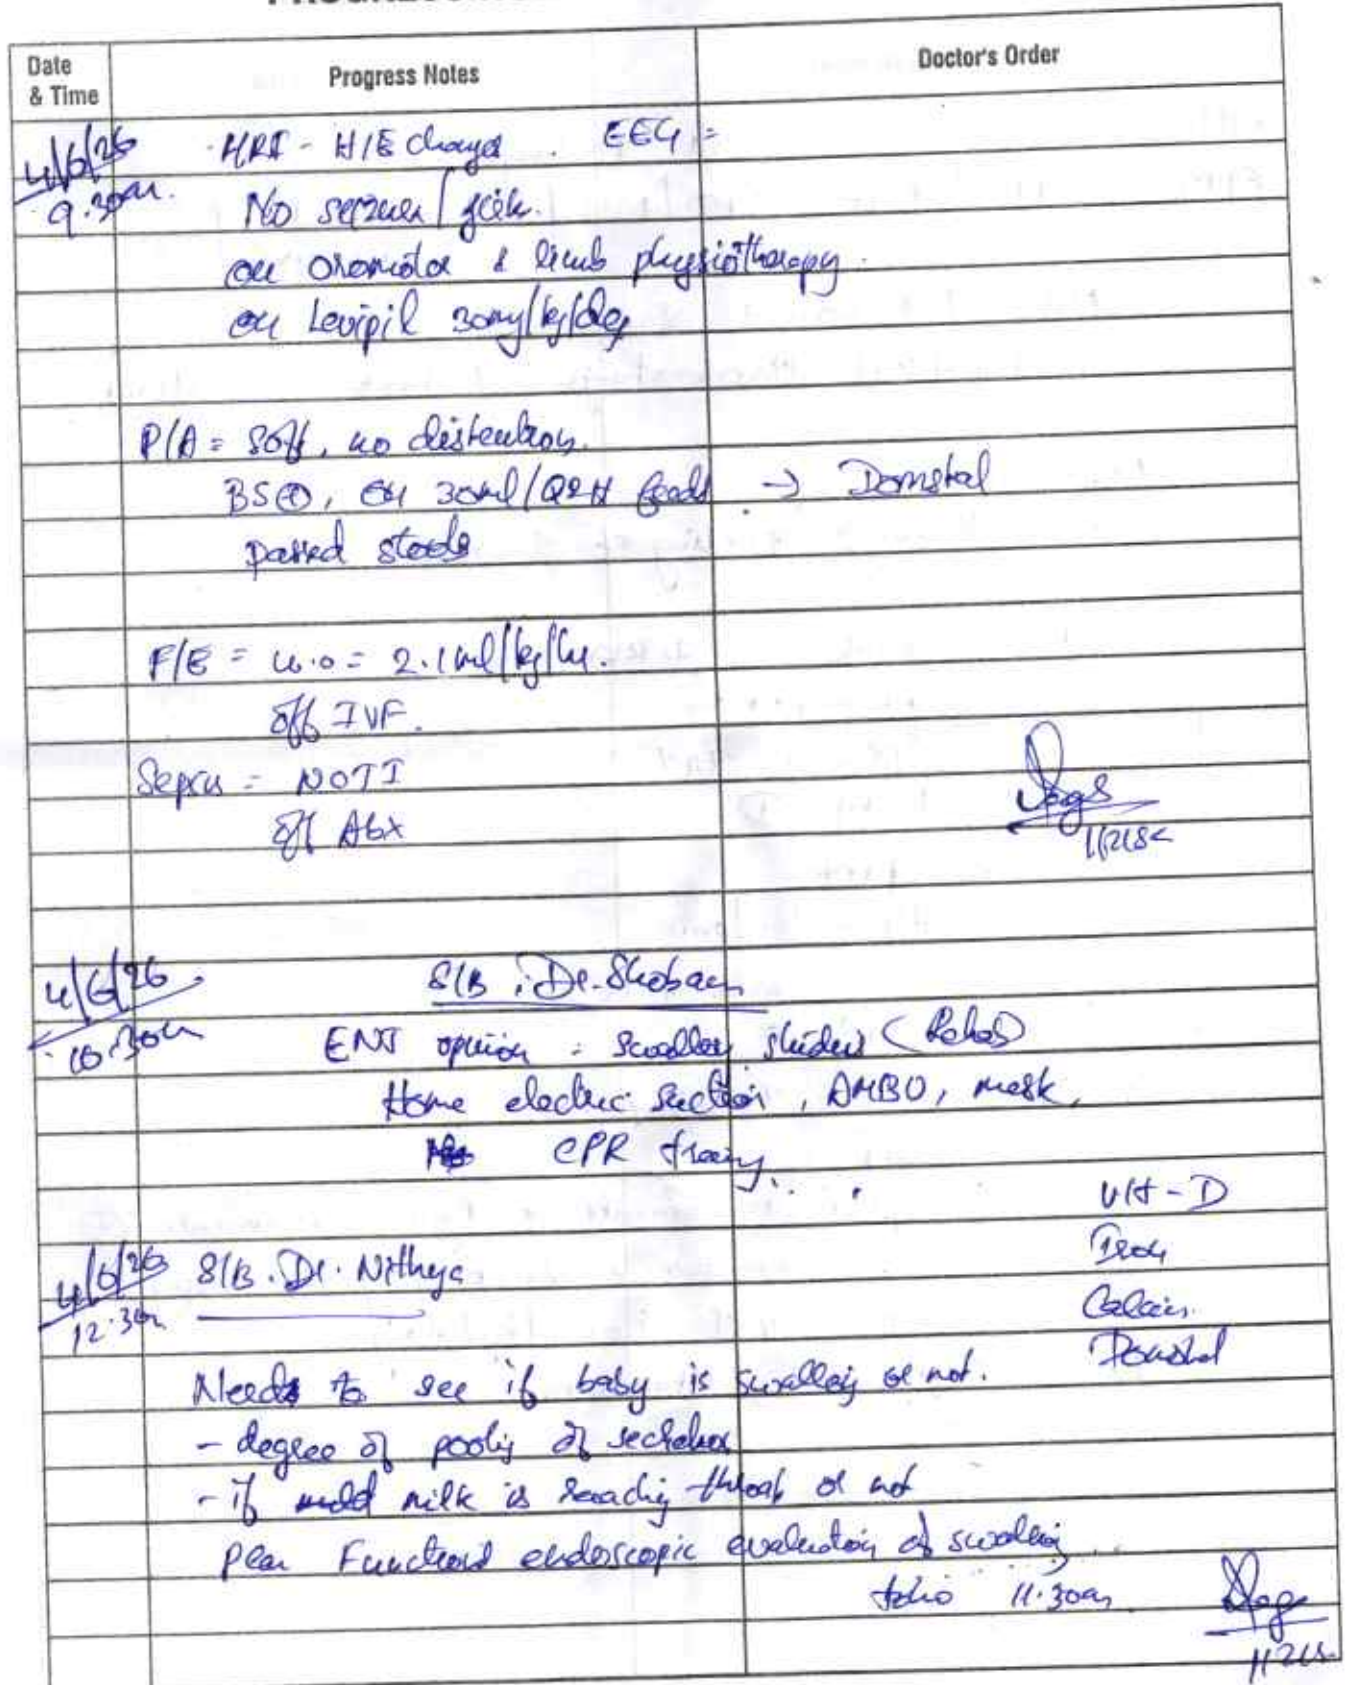 Date & Time
Progress Notes
Doctor's Order
4/6/26 MRI - HIE changes. EEG =
9.30am. No seizures /
on oromotor & limb physiotherapy.
on Levipil 30mg/kg/day
P/A = Soft, no distention.
BS⊕, on 30ml/Q2H feeds → Domstal
passed stools
F/E = u.o = 2.1ml/kg/hr.
off IVF.
Sepsis = NOTI
off Abx
4/6/26 S/B : Dr. Shobaen
10.30am ENT opinion = swallow studies
Home electric suction, AMBU, mask,
CPR training.
Vit-D
4/6/26 S/B. Dr. Nithya
Iron
12.30 Calcium.
Domstal
Needs to see if baby is swallowing or not.
- degree of pooling of secretions
- if milk is reaching throat or not
Plan Functional endoscopic evaluation of swallowing
11.30am